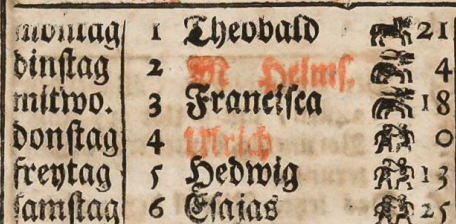 montag 1 Theobald 21
dinſtag 2 M Helmſ. 4
mitwo. 3 Franciſca 18
donſtag 4 Ulrich 0
freytag 5 Hedwig 13
ſamſtag 6 Eſaias 25